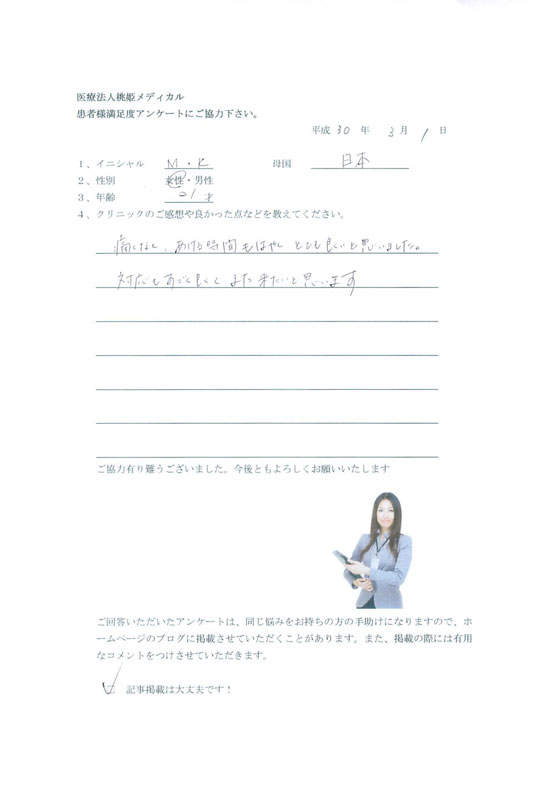 医療法人桃姫メディカル
患者様満足度アンケートにご協力下さい。
平成 30 年 3 月 1 日
1、イニシャル M・K 母国 日本
2、性別 女性・男性
3、年齢 21 才
4、クリニックのご感想や良かった点などを教えてください。
痛くなし、あける時間もはやく とても良いと思いました。
対応もすごく良くて また来たいと思います
ご協力有り難うございました。今後ともよろしくお願いいたします
ご回答いただいたアンケートは、同じ悩みをお持ちの方の手助けになりますので、ホ
ームページのブログに掲載させていただくことがあります。また、掲載の際には有用
なコメントをつけさせていただきます。
記事掲載は大丈夫です！